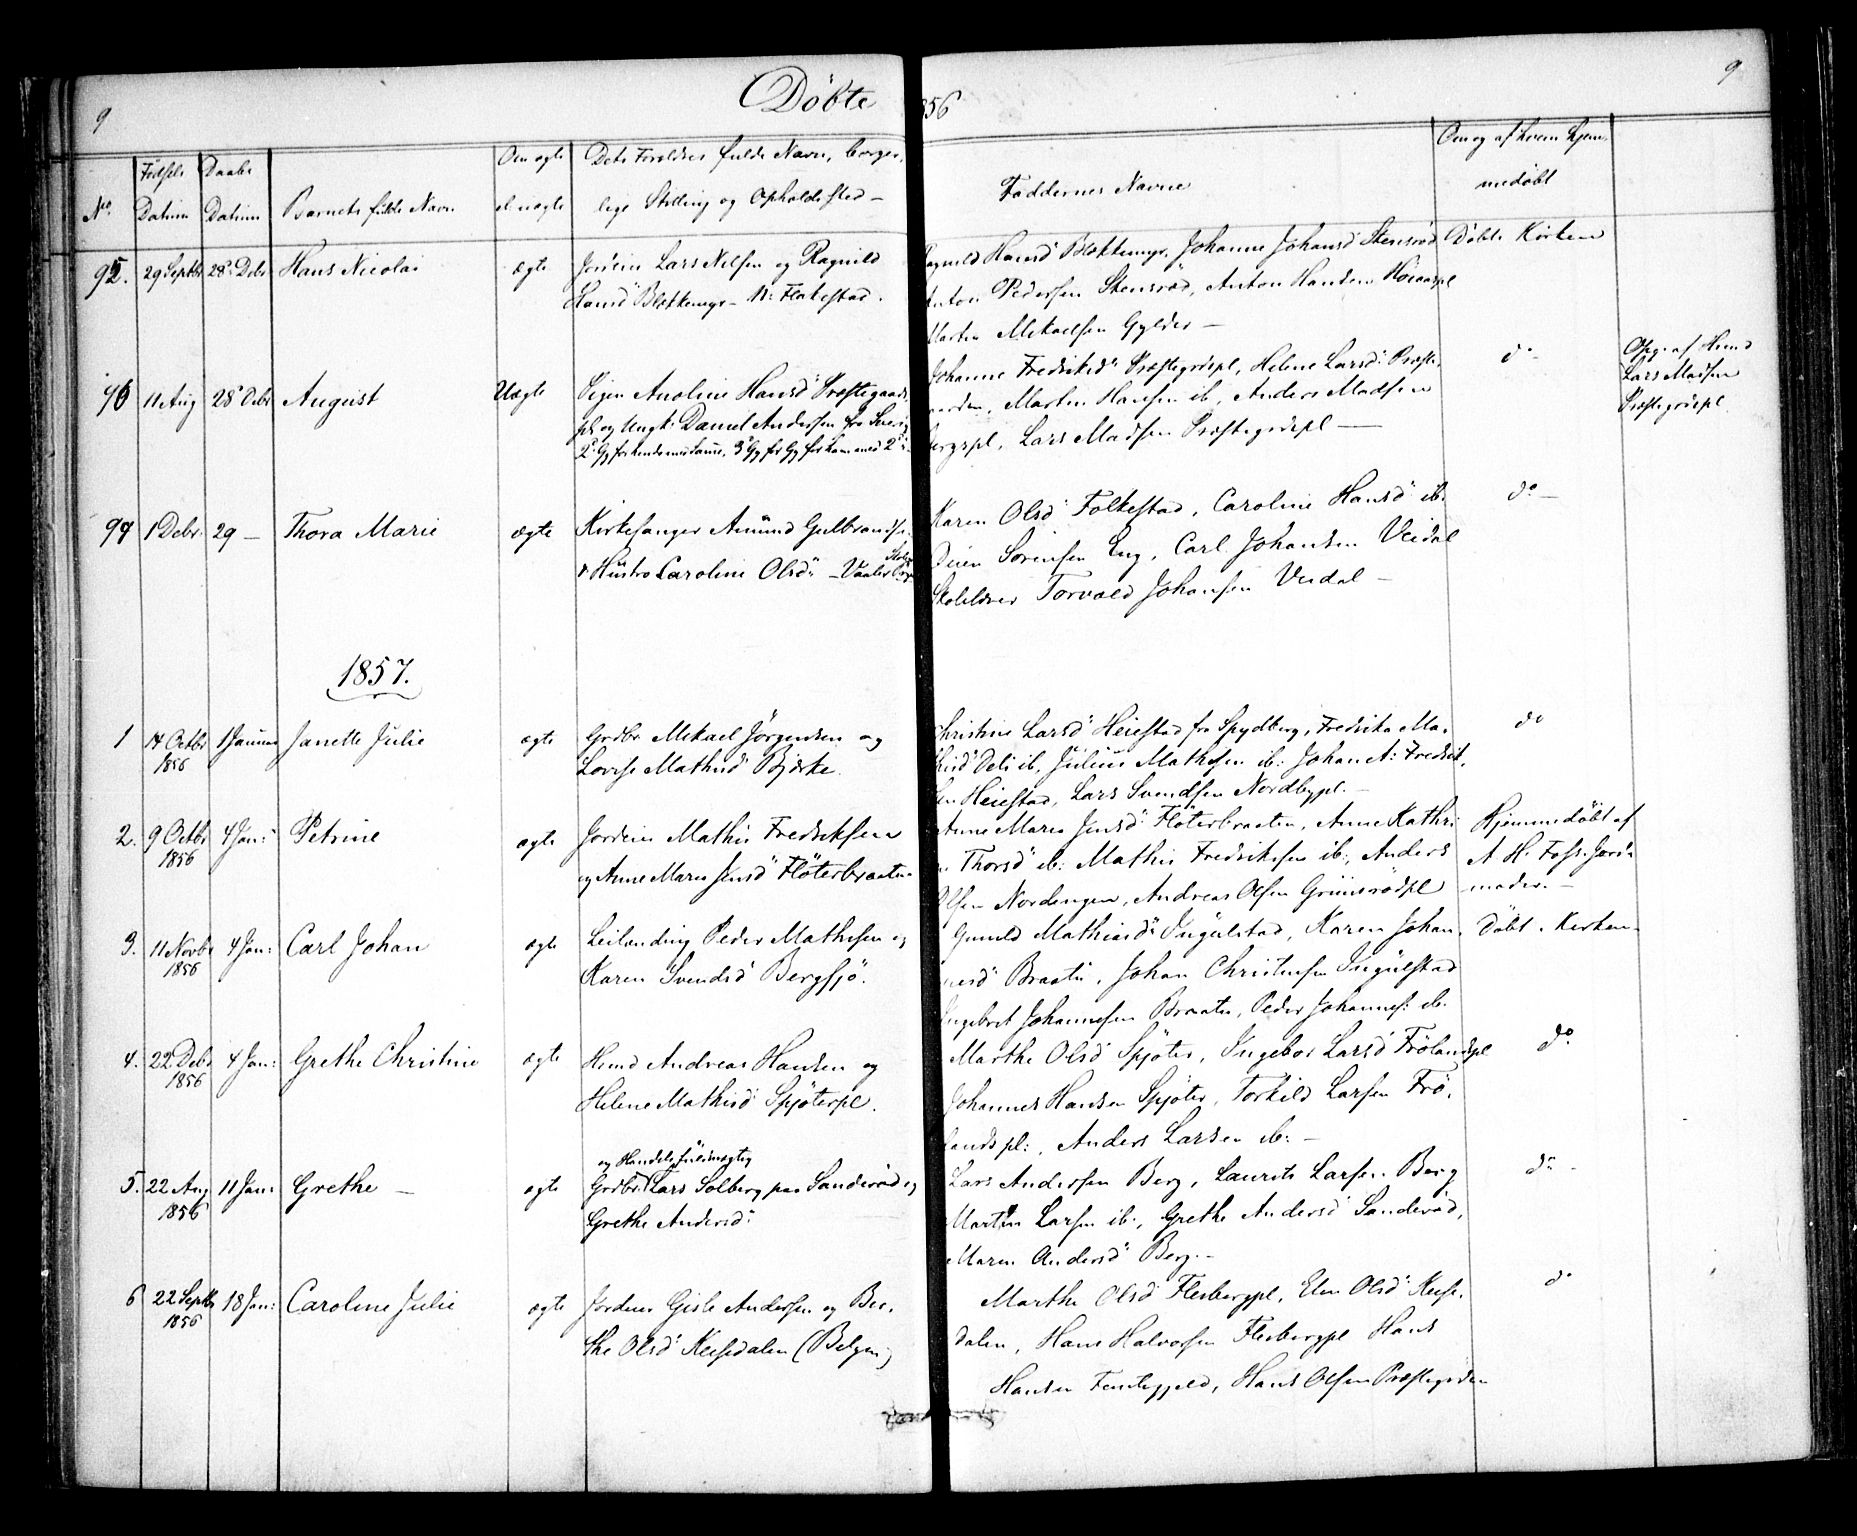 9
Døbte 856
9
No. Fødsels Datum Daabs Datum Barnets fulde Navn Om ægte el. uægte Dets Foreldres fulde Navn, borger-
lige Stilling og Opholdssted – Faddernes Navne Om og af hvem hjem-
medøbt
95. 29 Septbr 28 Debr Hans Nicolai ægte Jordein Lars Nilsen og Ragnild
Hansd Blekkemyr – N: Flakestad.
Ragnild Hansd Blekkemyr, Johanne Johansd Stensrød
Anton Pedersen Stensrød, Anton Hansen
Marten Mikaelsen Gylder –
Døbt i Kirken
96 11 Aug 28 Debr August Uægte Pigen Anoline Hansd Præstegaards
pl. og Ungk: Daniel Andersen fra Sverig
2 Gg for hende med samme, 3 Gg for ham med 2
Johanne Fredriksd Præstegrdspl, Helene Larsd: Præste-
gaarden, Martin Hansen ib, Anders Madsen
Bergspl, Lars Madsen Præstegrdspl –
do
Opg: af Huusmd
Lars Madsen
Præstegrdspl
97 1 Debr. 29 – Thora Marie ægte Kirkesanger Amund Gulbrands.
& Hustro Caroline Olsd – Vaaler
Karen Olsd Folkestad, Caroline Hansd ib.
Sørensen Eng, Carl Johansen Veidal
Skolelærer Torvald Johansen Veidal –
do –
1857.
1 14 Octbr 1856 1 Januar Janette Julie ægte Grdbr. Mikael Jørgensen og
Lovise Mathisd Bjerke.
Christine Larsd Heiestad fra Spydberg, Fredrika Ma-
thisd Deli ib, Julius Mathisen ib: Johan A: Fredrik-
sen Heiestad, Lars Svendsen Nordbypl. –
do
2. 9 Octbr 1856 4 Jan: Petrine ægte Jordein Mathis Fredriksen
og Anne Maria Jensd Fløterbraaten
Anne Maria Jensd Fløterbraaten, Anne Kathri-
n. Thorsd ib: Mathis Fredriksen ib:, Anders
Olsen Nordengen, Andreas Olsen Grimsrødpl
Hjemmedøbt af
A. H. Foss. Jord-
moder. –
3. 11 Novbr 1856 4 Jan: Carl Johan ægte Leilending Peder Mathisen og
Karen Svendsd Bergsjø.
Gunild Mathiasd Ingulstad, Karen Johan-
nesd Braaten, Johan Christensen Ingulstad
Ingebret Johannesen Braaten, Peder Johannes: ib.
Døbt i Kirken
4. 22 Debr 1856 4 Jan: Grethe Christine ægte Husmd Andreas Hansen og
Helene Mathisd Spjøterpl.
Marthe Olsd Spjøter, Ingebor Larsd Frølandspl
Johannes Hansen Spjøter, Torkild Larsen Frø-
landspl:, Anders Larsen ib: –
do
5. 22 Aug 1856 11 Jan. Grethe – ægte og Handelsfuldmægtig
Grdbr. Lars Solberg paa Sanderød og
Grethe Andersd:
Lars Andersen Berg, Laurits Larsen Berg
Martin Larsen ib:, Grethe Andersd Sanderød,
Maren Andersd Berg. –
do –
6 22 Septbr 1856 18 Jan: Caroline Julie ægte Jordein Gisle Andersen og Ber-
the Olsd Keisedalen (Belgen)
Marthe Olsd Flesbergpl, Elen Olsd Keise-
dalen, Hans Halvorsen Flesbergpl Hans
Hansen, Hans Olsen Præstegrden
do